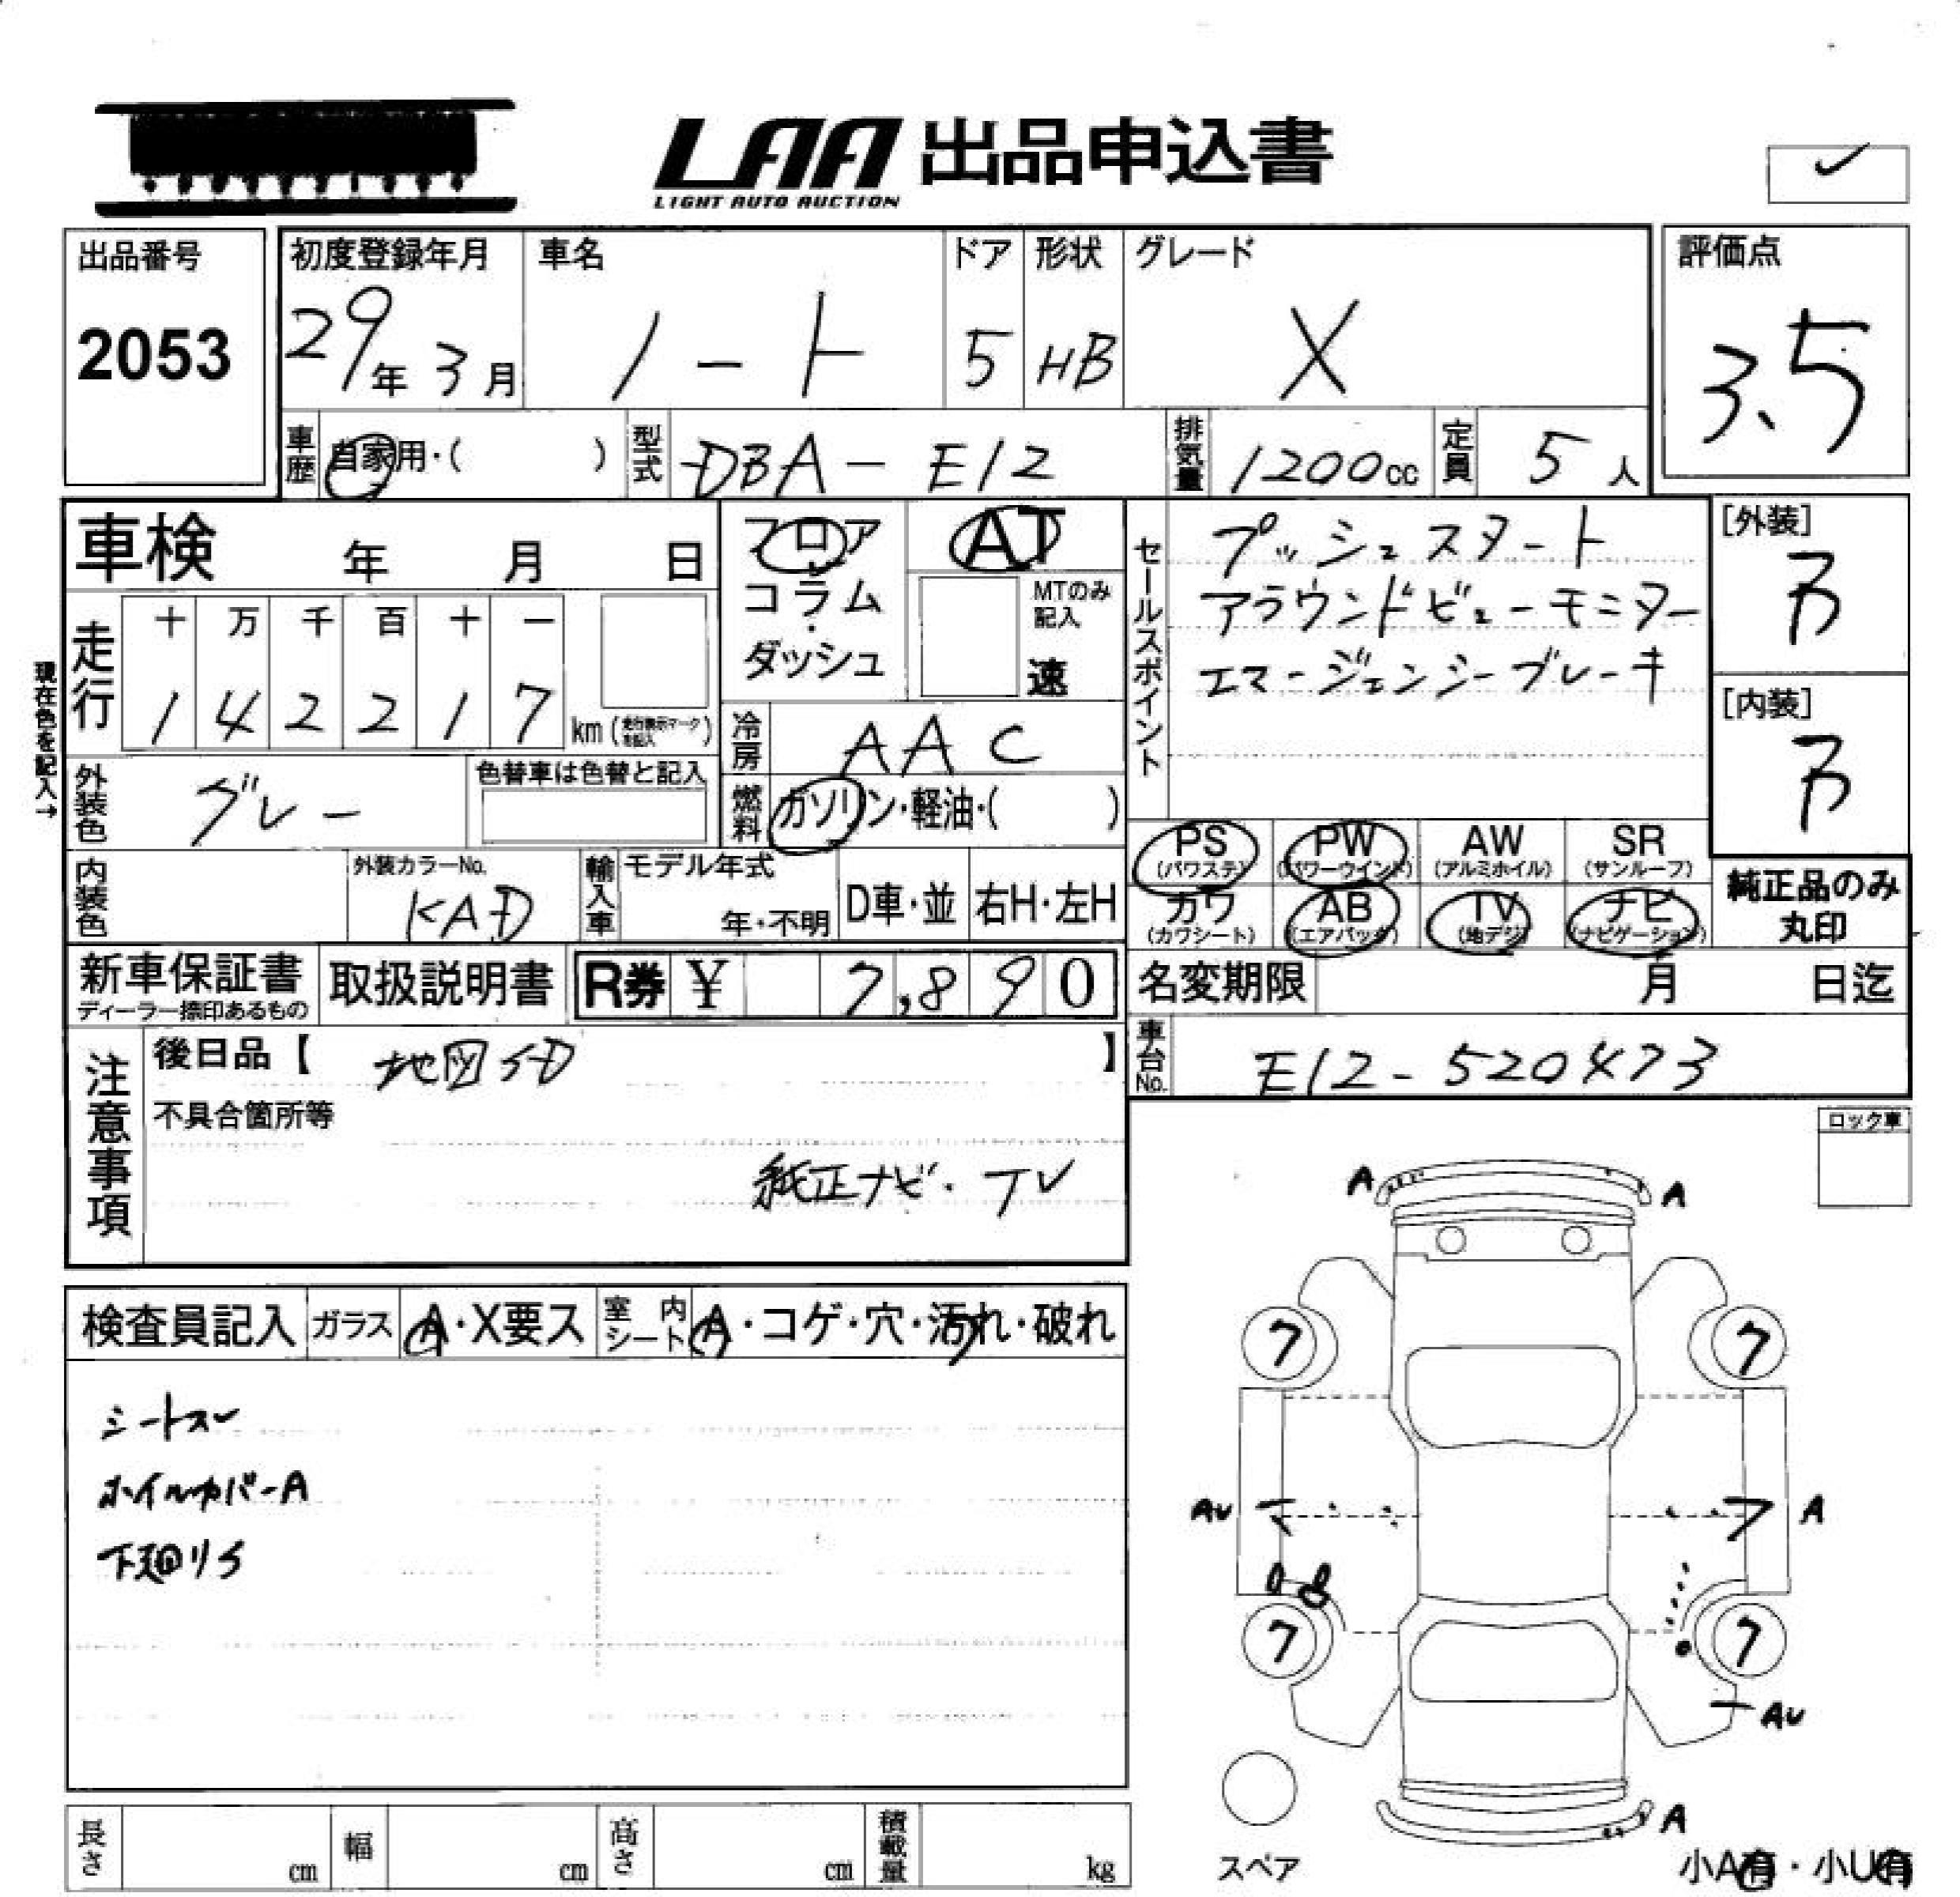 LAA 出品申込書
LIGHT AUTO AUCTION
出品番号
2053
初度登録年月
29年 3月
車名
ノート
ドア
5
形状
HB
グレード
X
評価点
3.5
車歴
自家用・( )
型式
DBA-E12
排気量
1200cc
定員
5人
車検 年 月 日
フロア
・
コラム
・
ダッシュ
AT
MTのみ記入
速
セールスポイント
プッシュスタート
アラウンドビューモニター
エマージェンシーブレーキ
[外装]
B
[内装]
B
現在色を記入→
走行
十 万 千 百 十 一
1 4 2 2 1 7
km (走行表示マークを記入)
冷房
AAC
外装色
グレー
色替車は色替と記入
燃料
ガソリン・軽油・( )
PS (パワステ)
PW (パワーウインド)
AW (アルミホイル)
SR (サンルーフ)
カワ (カワシート)
AB (エアバッグ)
TV (地デジ)
ナビ (ナビゲーション)
純正品のみ
丸印
内装色
外装カラーNo.
KAD
輸入車
モデル年式
年・不明
D車・並
右H・左H
新車保証書
ディーラー捺印あるもの
取扱説明書
R券 ¥ 7,890
名変期限 月 日迄
車台No.
E12-520473
注意事項
後日品【 地図SD 】
不具合箇所等
純正ナビ・TV
ロック車
検査員記入
ガラス
A・X要ス
室内シート
A・コゲ・穴・汚れ・破れ
シートスレ
ホイルカバーA
下廻りS
A A
7 7
AU A
7 7
AU
A
スペア
小A有・小U有
長さ cm
幅 cm
高さ cm
積載量 kg